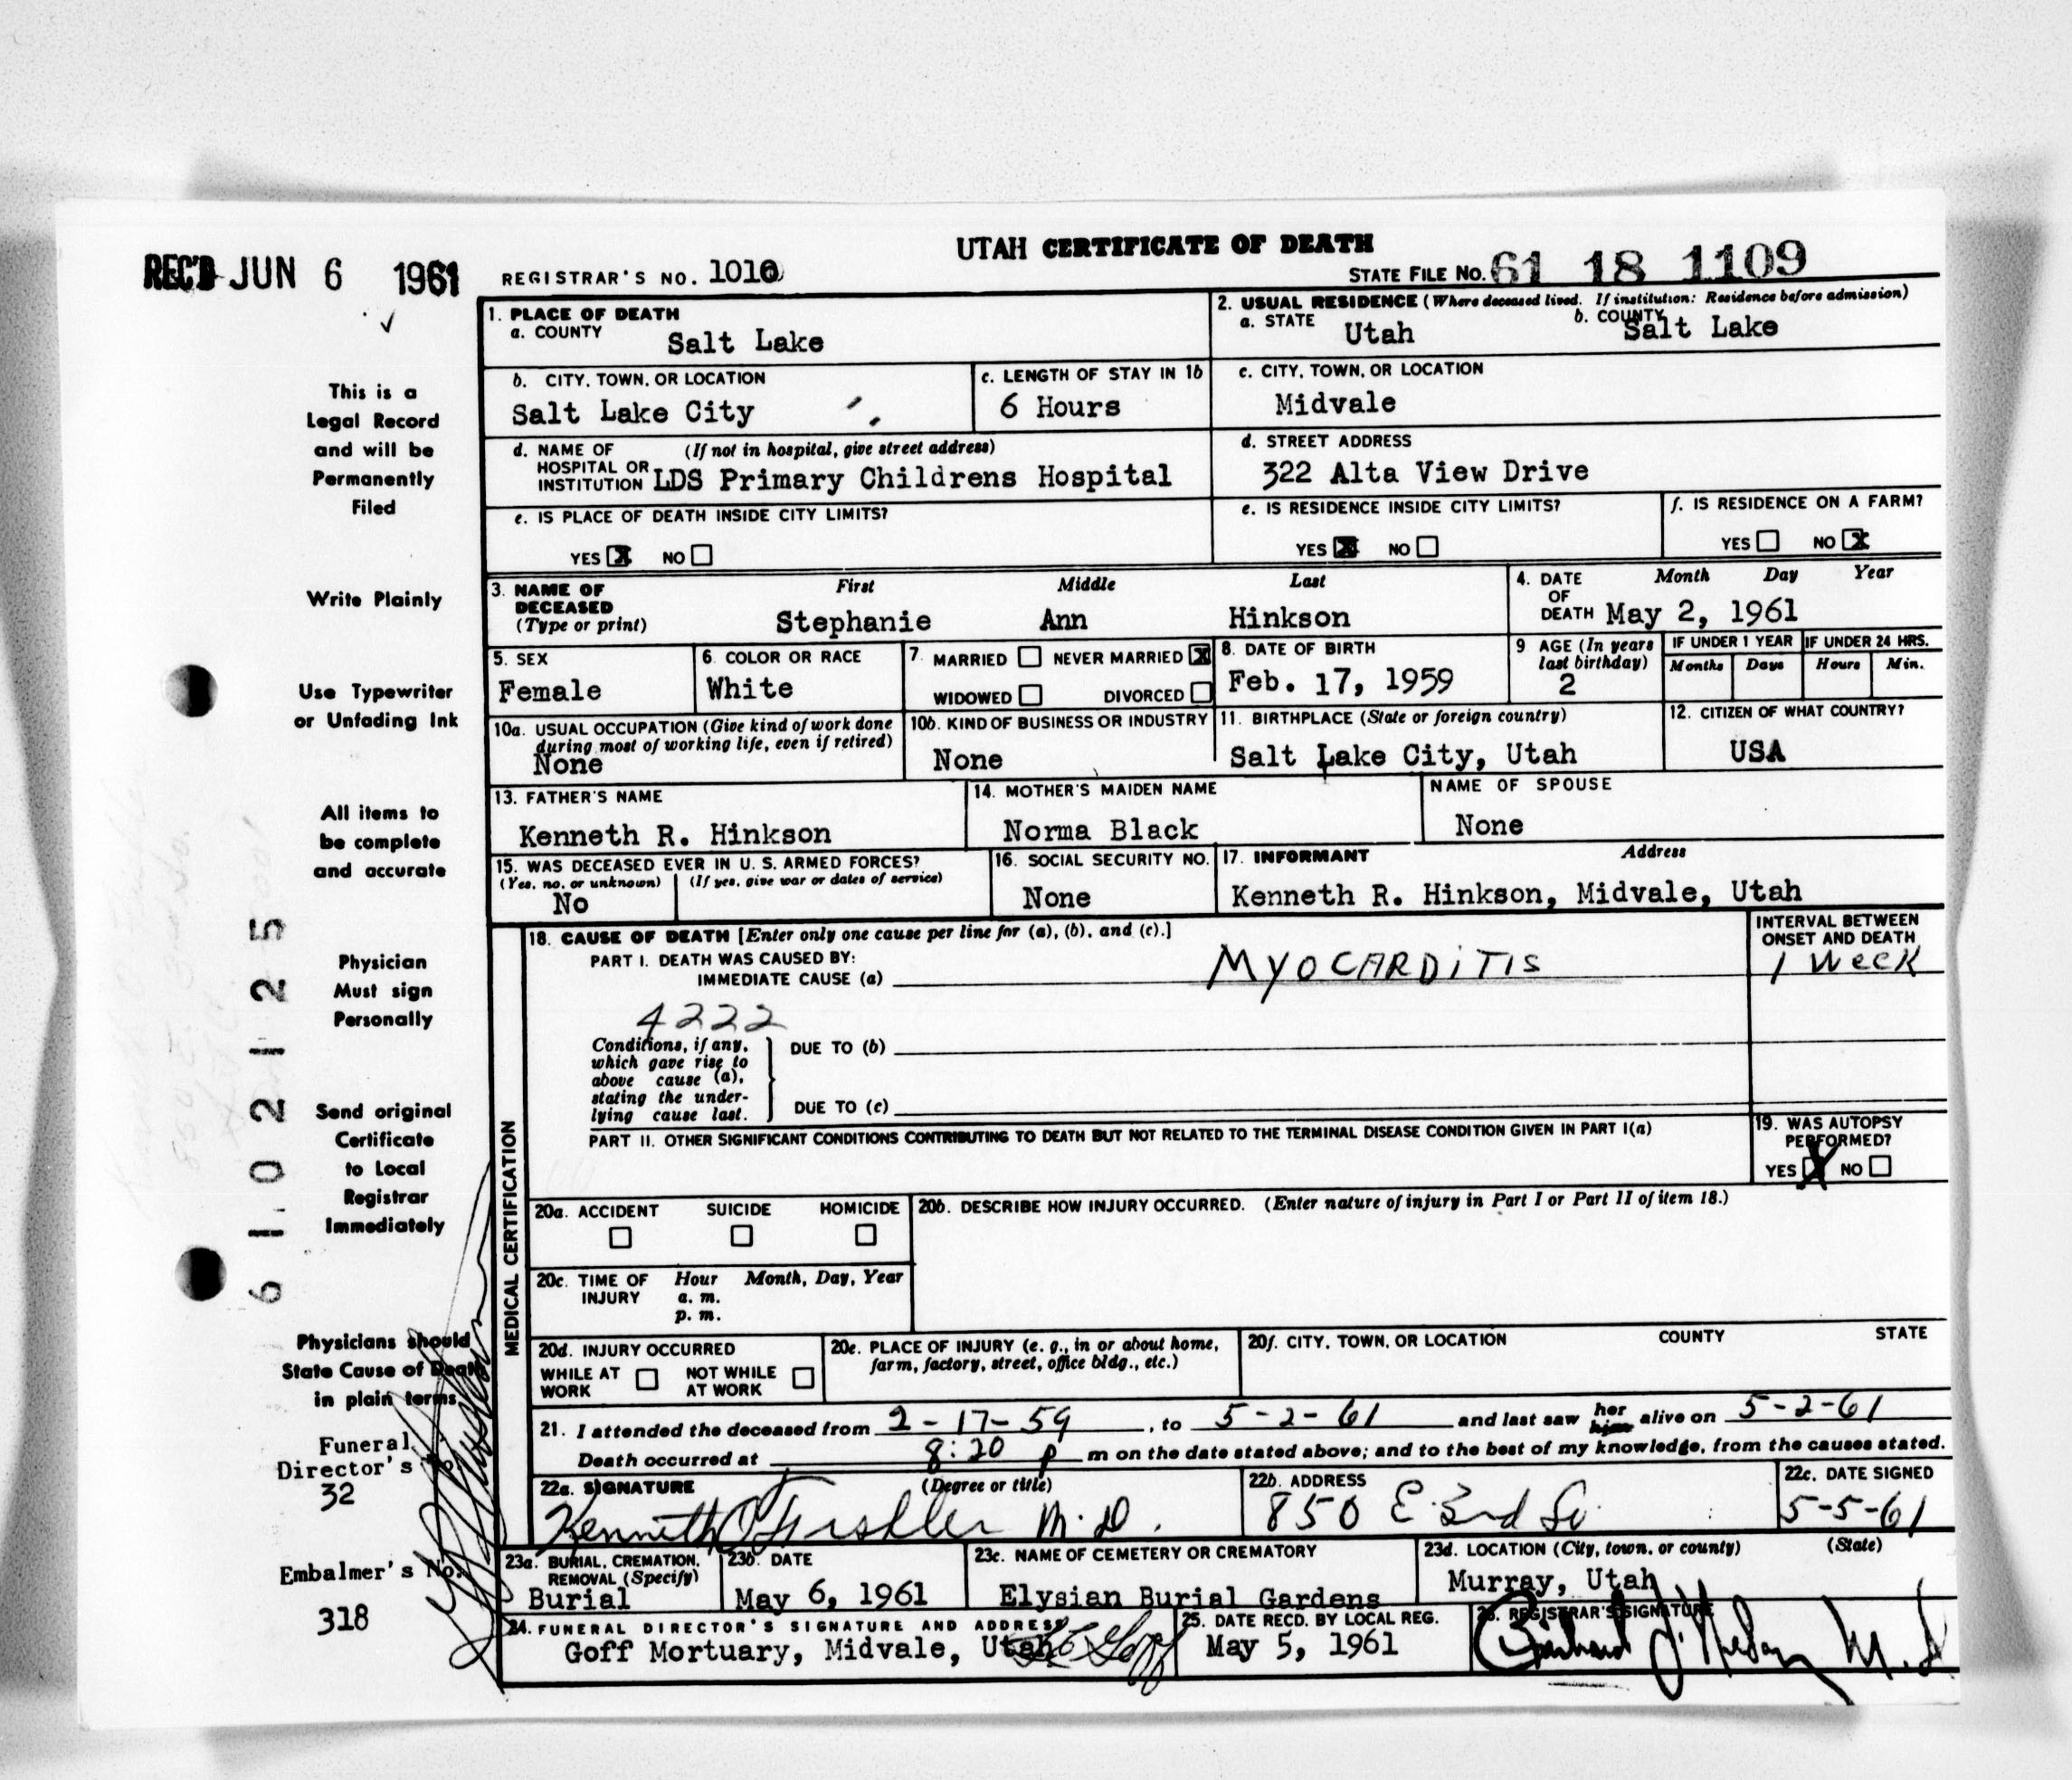 UTAH CERTIFICATE OF DEATH
REC'D JUN 6 1961
REGISTRAR'S NO. 1010
STATE FILE No. 61 18 1109
1. PLACE OF DEATH
a. COUNTY Salt Lake
2. USUAL RESIDENCE (Where deceased lived. If institution: Residence before admission)
a. STATE Utah b. COUNTY Salt Lake
b. CITY, TOWN, OR LOCATION
Salt Lake City
c. LENGTH OF STAY IN 1b
6 Hours
c. CITY, TOWN, OR LOCATION
Midvale
d. NAME OF HOSPITAL OR INSTITUTION (If not in hospital, give street address)
LDS Primary Childrens Hospital
d. STREET ADDRESS
322 Alta View Drive
e. IS PLACE OF DEATH INSIDE CITY LIMITS?
YES X NO
e. IS RESIDENCE INSIDE CITY LIMITS?
YES X NO
f. IS RESIDENCE ON A FARM?
YES NO X
3. NAME OF DECEASED (Type or print)
First Middle Last
Stephanie Ann Hinkson
4. DATE OF DEATH Month Day Year
May 2, 1961
5. SEX
Female
6. COLOR OR RACE
White
7. MARRIED NEVER MARRIED X
WIDOWED DIVORCED
8. DATE OF BIRTH
Feb. 17, 1959
9 AGE (In years last birthday)
2
IF UNDER 1 YEAR
Months Days
IF UNDER 24 HRS.
Hours Min.
10a. USUAL OCCUPATION (Give kind of work done during most of working life, even if retired)
None
10b. KIND OF BUSINESS OR INDUSTRY
None
11. BIRTHPLACE (State or foreign country)
Salt Lake City, Utah
12. CITIZEN OF WHAT COUNTRY?
USA
13. FATHER'S NAME
Kenneth R. Hinkson
14. MOTHER'S MAIDEN NAME
Norma Black
NAME OF SPOUSE
None
15. WAS DECEASED EVER IN U. S. ARMED FORCES?
(Yes, no, or unknown) (If yes, give war or dates of service)
No
16. SOCIAL SECURITY NO.
None
17. INFORMANT Address
Kenneth R. Hinkson, Midvale, Utah
MEDICAL CERTIFICATION
18. CAUSE OF DEATH [Enter only one cause per line for (a), (b), and (c).]
PART I. DEATH WAS CAUSED BY:
IMMEDIATE CAUSE (a) MYOCARDITIS
INTERVAL BETWEEN ONSET AND DEATH
1 Week
4222
Conditions, if any,
which gave rise to
above cause (a),
stating the under-
lying cause last.
DUE TO (b)
DUE TO (c)
PART II. OTHER SIGNIFICANT CONDITIONS CONTRIBUTING TO DEATH BUT NOT RELATED TO THE TERMINAL DISEASE CONDITION GIVEN IN PART I(a)
19. WAS AUTOPSY PERFORMED?
YES X NO
20a. ACCIDENT SUICIDE HOMICIDE
20b. DESCRIBE HOW INJURY OCCURRED. (Enter nature of injury in Part I or Part II of item 18.)
20c. TIME OF INJURY Hour Month, Day, Year
a. m.
p. m.
20d. INJURY OCCURRED
WHILE AT WORK NOT WHILE AT WORK
20e. PLACE OF INJURY (e. g., in or about home, farm, factory, street, office bldg., etc.)
20f. CITY, TOWN, OR LOCATION COUNTY STATE
21. I attended the deceased from 2-17-59, to 5-2-61 and last saw her him alive on 5-2-61
Death occurred at 8:20 p m on the date stated above; and to the best of my knowledge, from the causes stated.
22a. SIGNATURE (Degree or title)
Kenneth M.D.
22b. ADDRESS
850 E 3rd So
22c. DATE SIGNED
5-5-61
23a. BURIAL, CREMATION, REMOVAL (Specify)
Burial
23b. DATE
May 6, 1961
23c. NAME OF CEMETERY OR CREMATORY
Elysian Burial Gardens
23d. LOCATION (City, town, or county) (State)
Murray, Utah
24. FUNERAL DIRECTOR'S SIGNATURE AND ADDRESS
Goff Mortuary, Midvale, Utah Goff
25. DATE RECD. BY LOCAL REG.
May 5, 1961
26. REGISTRAR'S SIGNATURE
M.D
This is a
Legal Record
and will be
Permanently
Filed
Write Plainly
Use Typewriter
or Unfading Ink
All items to
be complete
and accurate
Physician
Must sign
Personally
Send original
Certificate
to Local
Registrar
Immediately
Physicians should
State Cause of Death
in plain terms.
Funeral
Director's No.
32
Embalmer's No.
318
61.02 1125